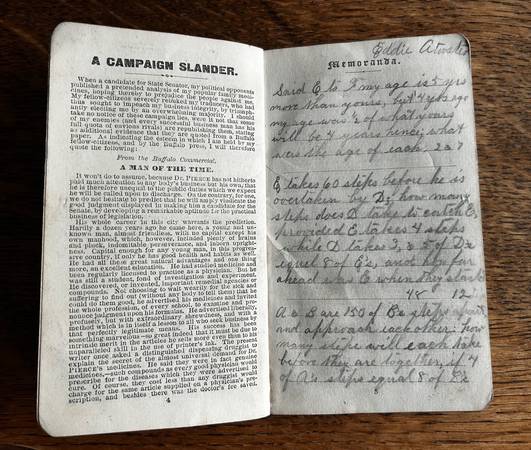 A CAMPAIGN SLANDER.
When a candidate for State Senator, my political opponents
published a pretended analysis of my popular family medi-
cines, hoping thereby to prejudice the people against me.
My fellow-citizens severely rebuked my traducers, who had
thus sought to impeach my business integrity, by triumph-
antly electing me by an overwhelming majority. I should
take no notice of these campaign lies, were it not that some
of my enemies (and every successful business man has his
full quota of envious rivals) are republishing them, stating
as additional evidence that they are quoted from a Buffalo
paper. As indicating the esteem in which I am held by my
fellow-citizens, and by the Buffalo press, I will here
quote the following:
From the Buffalo Commercial.
A MAN OF THE TIME.
It won't do to assume, because DR. PIERCE has not hitherto
paid much attention to any body's business but his own, that
he is therefore unequal to the public duties which we expect
he will be called upon to discharge. On the contrary, for one,
we do not hesitate to predict that he will amply vindicate the
good judgment displayed in making him a candidate for the
Senate, by developing a remarkable aptitude for the practical
business of legislation.
His whole career in this city warrants the prediction.
Hardly a dozen years ago he came here, a young and un-
known man, almost friendless, with no capital except his
own manhood, which, however, included plenty of brains
and pluck, indomitable perseverance, and inborn upright-
ness. Capital enough for any young man, in this progres-
sive country, if only he has good health and habits as well.
He had all these great natural advantages and one thing
more, an excellent education. He had studied medicine and
been regularly licensed to practice as a physician. But he
was still a student fond of investigation and experiment.
He discovered, or invented, important remedial agencies or
compounds. Not choosing to wait wearily for the sick and
suffering to find out (without any body to tell them) that he
could do them good, he advertised his medicines and invited
the whole profession, of every school, to examine and pro-
nounce judgment upon his formulas. He advertised liberally,
profusely, but with extraordinary shrewdness, and with a
method which is in itself a lesson to all who seek business by
that perfectly legitimate means. His success has been
something marvelous—so great indeed that it must be due to
intrinsic merit in the articles he sells more even than to his
unparalleled skill in the use of printer's ink. The present
writer once asked a distinguished dispensing druggist to
explain the secret of the almost universal demand for Dr.
PIERCE'S medicines. He said they were in fact genuine
medicines,—such compounds as every good physician would
prescribe for the diseases which they were advertised to
cure. Of course, they cost less than any druggist would
charge for the same article supplied on a physician's pre-
scription, and besides there was the doctor's fee saved.
4
Eddie Atwater
Memoranda.
Said E to F my age is 5 yrs
more than yours, but 4 yrs ago
my age was ½ of what yours
will be 4 years since, what
was the age of each
E takes 60 steps before he is
overtaken by D; how many
steps does D take to catch E
provided E takes 4 steps
while D takes 3
equal 8 of E's, and how far
ahead was E when they started
48 12
A & B are 150 of B's steps apart
and approach each other: how
many steps will each take
before they are together, if 4
of A's steps equal 8 of B's